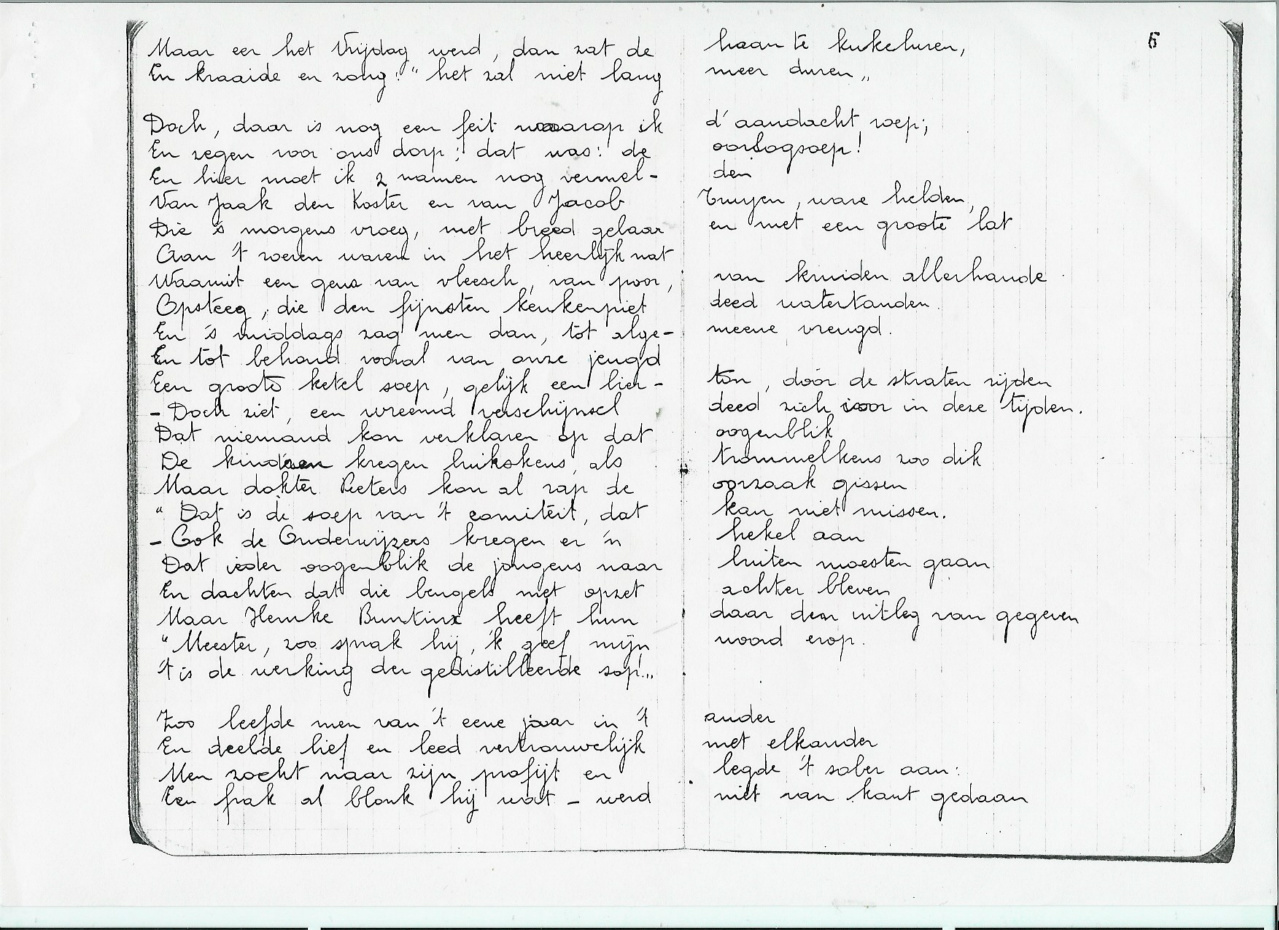 6
Maar eer het Vrijdag werd, dan zat de haan te kukeluren,
En kraaide en zong: "het zal niet lang meer duren„
Doch, daar is nog een feit waarop ik d'aandacht roep;
En zegen voor ons dorp; dat was: de oorlogsoep!
En hier moet ik 2 namen nog vermel- den
Van Jaak den Koster en van Jacob Truyen, ware helden,
Die 's morgens vroeg, met breed gelaar en met een groote lat
Aan 't roeren waren in het heerlijk nat
Waaruit een geur van vleesch, van poor, van kruiden allerhande
Opsteeg, die den fijnsten keukenpiet deed watertanden.
En 's middags zag men dan, tot alge- meene vreugd.
En tot behoud vooral van onze jeugd
Een groote ketel soep, gelijk een bier- ton, door de straten rijden
- Doch ziet, een vreemd verschijnsel deed zich voor in deze tijden.
Dat niemand kon verklaren op dat oogenblik
De kinderen kregen buikskens, als trommelkens zoo dik
Maar dokter Peeters kon al rap de oorzaak gissen
" Dat is de soep van 't comiteit, dat kan niet missen.
- Ook de Onderwijzers kregen er 'n hekel aan
Dat ieder oogenblik de jongens naar buiten moesten gaan
En dachten dat die bengels met opzet achter bleven
Maar Henske Buntinx heeft hun daar den uitleg van gegeven
"Meester, zoo sprak hij, 'k geef mijn woord erop.
't is de werking der gedistilleerde sop!..
Zoo leefde men van 't eene jaar in 't ander
En deelde lief en leed vertrouwelijk met elkander
Men zocht naar zijn profijt en legde 't sober aan:
Een frak al blonk hij wat - werd niet van kant gedaan